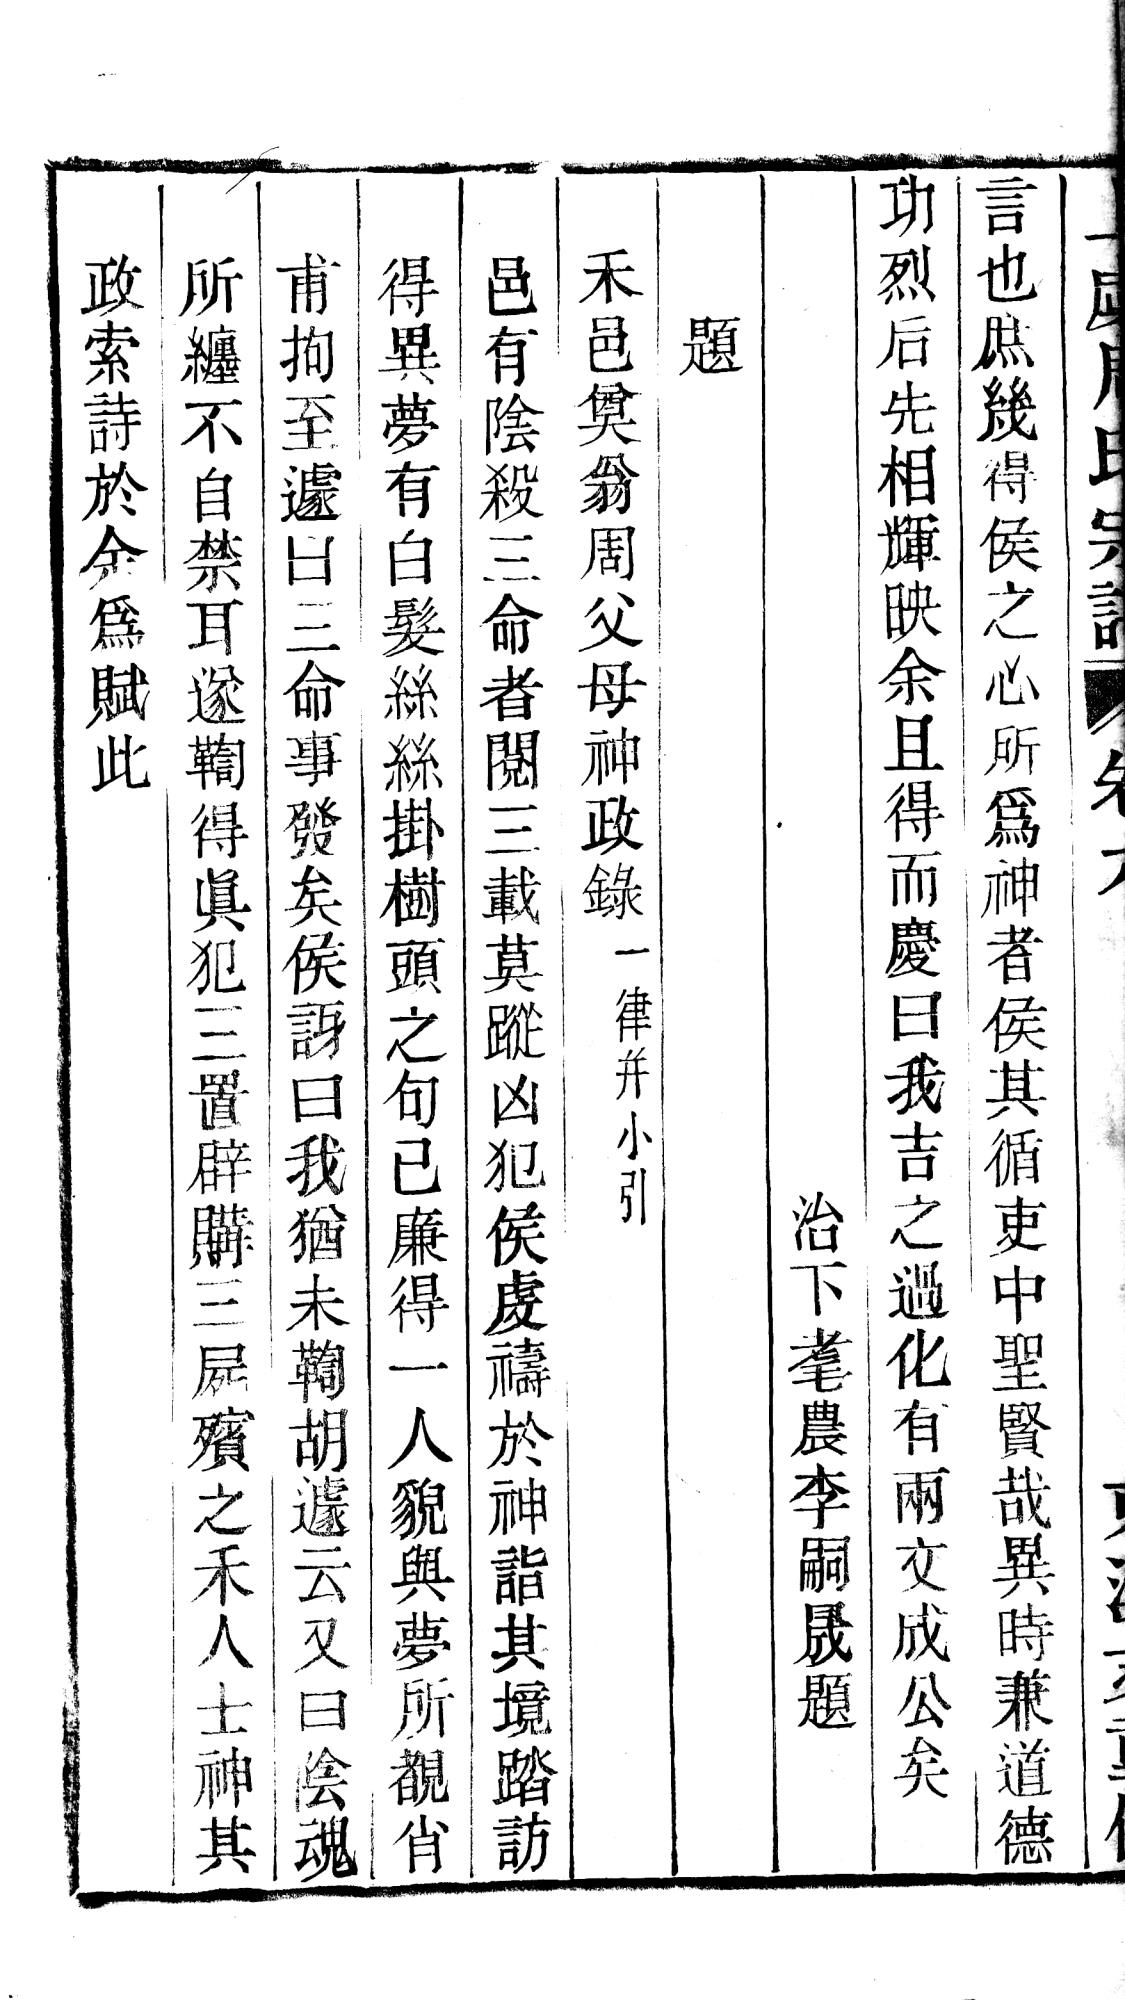 言也庶幾得侯之心所爲神者侯其循吏中聖賢哉異時兼道德
功烈后先相輝映余且得而慶曰我吉之過化有兩文成公矣
治下耄農李嗣晟題
題
禾邑奠翁周父母神政錄一律并小引
邑有陰殺三命者閱三載莫蹤凶犯侯虔禱於神詣其境踏訪
得異夢有白髮絲絲掛樹頭之句已廉得一人貌與夢所覩肖
甫拘至遽曰三命事發矣侯訝曰我猶未鞫胡遽云又曰陰魂
所纏不自禁耳遂鞫得眞犯三置辟購三屍殯之禾人士神其
政索詩於余爲賦此